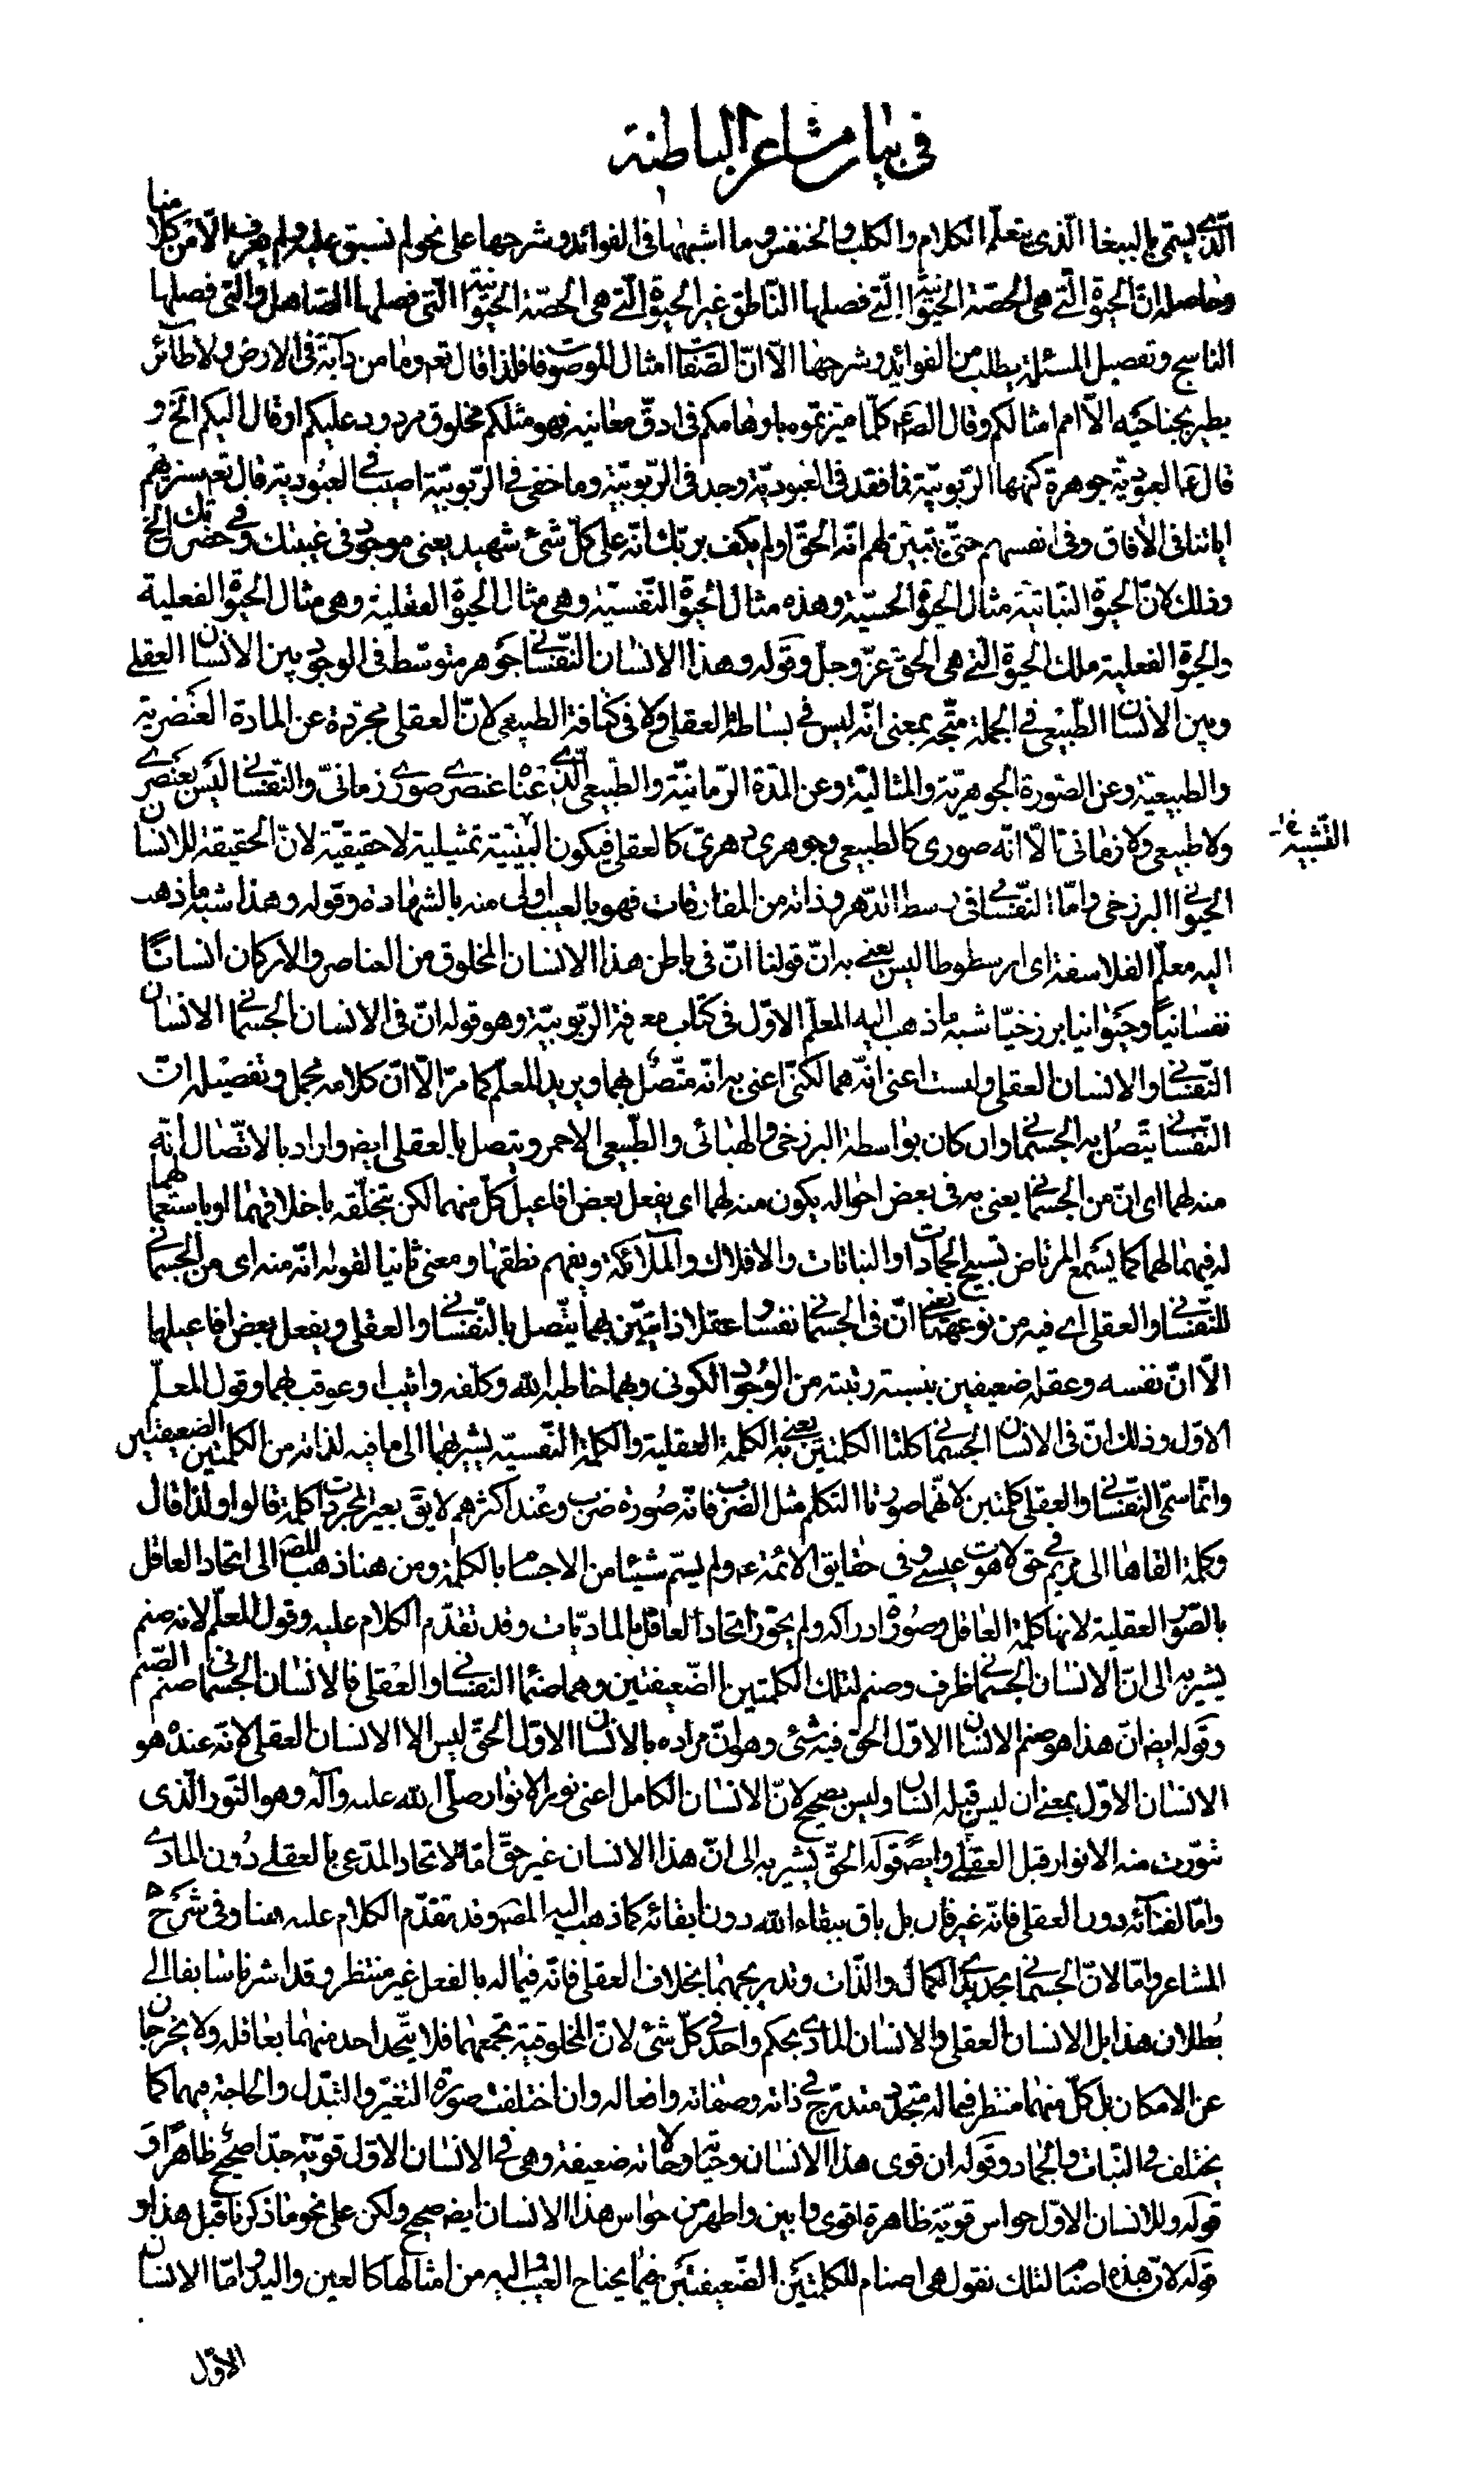 في بيان مشاعر الباطنة
الّذي يسمّى بالببغا الّذي يتعلّم الكلام والكلب والخنفس وما اشبهها في الفوائد وشرحها على نحو لم نسبق عليه ولم يعرف الّا من كلامنا
وحاصله انّ الحيوة الّتي هي الحصّة الحيوانيّة الّتي فصلها النّاطق غير الحيوة الّتي هي الحصّة الحيوانيّة الّتي فصلها الصّاهل والتي فصلها
النابح وتفصيل المسئلة يطلب من الفوائد وشرحها الّا انّ الصّفات امثال الموصوفات فلذا قال تعم وما من دآبّة في الارض ولا طآئر
يطير بجناحيه الّا امم امثالكم وقال الصّعم كلّما ميّزتموه باوهامكم في ادقّ معانيه فهو مثلكم مخلوق مردود عليكم او قال اليكم الخ و
قال ع العبوديّة جوهرة كنهها الرّبوبيّة فما فقد في العبوديّة وجد في الرّبوبيّة وما خفي في الرّبوبيّة اصيب في العبوديّة قال تعم سنريهم
اياتنا في الافاق وفي انفسهم حتّى يتبيّن لهم انّه الحقّ اولم يكف بربّك انّه على كلّ شئ شهيد يعني موجود في غيبتك وفي حضرتك الخ
وذلك لانّ الحيوة النّباتيّة مثال الحيوة الحسيّة وهذه مثال الحيوة النّفسيّة وهي مثال الحيوة العقلية وهي مثال الحيوة الفعلية
والحيوة الفعلية ملك الحيوة الّتي هي الحقّ عزّ وجلّ وقوله وهذا الانسان النّفساني جوهر متوسّط في الوجود بين الانسان العقلي
وبين الانسان الطّبيعي في الجملة متّجه بمعنى انّه ليس في بساطة العقلي ولا في كثافة الطبيعي لانّ العقلي مجرّدة عن المادة العنصرية
والطبيعيّة وعن الصّورة الجوهريّة والمثاليّة وعن المدّة الزّمانيّة والطّبيعي الّذي عنا عنصري صوري زمانيّ والنّفساني ليس بعنصري
ولا طبيعي ولا زماني الّا انّه صوري كالطبيعي وجوهري دهريّ كالعقلي فيكون البينيّة تمثيلية لا حقيقيّة لانّ الحقيقة للانسان
التّشبيه خ‌ل
الحيواني البرزخي وامّا النّفساني في وسط الدّهر وذاته من المفارقات فهو بالغيب اولى منه بالشهادة وقوله وهذا شبه ما ذهب
اليه معلّم الفلاسفة اي ارسطوطاليس يعني به انّ قولنا انّ في باطن هذا الانسان المخلوق من العناصر والاركان انسانًا
نفسانيًا وحيوانيا برزخيّا شبه ما ذهب اليه المعلّم الاوّل في كتاب معرفة الرّبوبيّة وهو قوله انّ في الانسان الجسماني الانسان
النّفساني والانسان العقلي ولست اعني انّه هما لكنّي اعني به انّه متّصل بهما ويريد المعلّم كما مرّ الّا انّ كلامه مجمل وتفصيله انّ
النّفساني يتّصل به الجسماني وان كان بواسطة البرزخي والهبائي والطّبيعي الاحمر ويتصل بالعقلي ايض واراد بالاتّصال انّه
منه لهما اي انّ من الجسماني يعني به في بعض احواله يكون منه لهما اي يفعل بعض افاعيل كلّ منهما لكن بتخلّقه باخلاقهما او باستعمالهما
له فيما لهما كما يسمع المرتاض تسبيح الجمادات والنباتات والافلاك والملآئكة ويفهم نطقها ومعنى ثانيا لقوله انّه منه اي من الجسماني
للنّفساني والعقلي اي فيه من نوعهما يعني انّ في الجسماني نفسا وعقلا ذاتيّين بهما يتّصل بالنّفساني والعقلي ويفعل بعض افاعيلها
الّا انّ نفسه وعقله ضعيفين بنسبة رتبته من الوجود الكوني وبهما خاطبه الله وكلّفه واثيب وعوقب بهما وقول المعلّم
الاوّل وذلك انّ في الانسان الجسماني كلتا الكلمتين يعني به الكلمة العقلية والكلمة النّفسيّة يشير بهما الى ما فيه لذاته من الكلمتين الضعيفتين
وانّما سمّى النّفساني والعقلي كلمتين لانّهما صورتا التكلم مثل الضرب فانّه صورة ضرب وعند اكثرهم لا يق بغير المجردات كلمة قالوا ولذا قال
وكلمة القاها الى مريم في حق لاهوت عيسى وفي حقايق الائمّة ع ولم يسمّ شيئا من الاجسام بالكلمة ومن هنا ذهب المص الى اتحاد العاقل
بالصّور العقلية لانها كلمة العاقل وصورة ادراكه ولم يجوّز اتحاد العاقل بالماديّات وقد تقدّم الكلام عليه وقول المعلّم لانه صنم
يشير به الى انّ الانسان الجسماني ظرف وصنم لتلك الكلمتين الضّعيفتين وهما صنما النفساني والعقلي فالانسان الجسماني صنم الصّنم
وقوله ايض انّ هذا هو صنم الانسان الاوّل الحق فيه شئ وهو انّ مراده بالانسان الاوّل الحقّ ليس الا الانسان العقلي لانّه عنده هو
الانسان الاوّل بمعنى ان ليس قبله انسان وليس بصحيح لانّ الانسان الكامل اعني نور الانوار صلّى الله عليه وآله وهو النّور الّذي
نوّرت منه الانوار قبل العقلي وايضً قوله الحقّ يشير به الى انّ هذا الانسان غير حقّ امّا لاتحاد المدّعي بالعقلي دون المادي
وامّا لفنآئه دون العقلي فانّه غير فان بل باق ببقاء الله دون ابقائه كما ذهب اليه المص وقد تقدّم الكلام عليه هنا وفي شرح
المشاعر وامّا لانّ الجسماني تجددي الكمال والذّات وتدريجيهما بخلاف العقلي فانّه فيما له بالفعل غير منتظر وقد اشرنا سابقا الى
بطلان هذا بل الانسان العقلي والانسان المادي بحكم واحد في كلّ شئ لانّ المخلوقية تجمعهما فلا يتّحد احد منهما بعاقله ولا يخرجان
عن الامكان بل كلّ منهما منتظر فيما له متجدّد متدرّج في ذاته وصفاته وافعاله وان اختلفت صورة التغيّر والتبدّل والحاجة فيهما كما
يختلف في النّبات والجماد وقوله ان قوى هذا الانسان وحياته وحالاته ضعيفة وهي في الانسان الاوّل قويّة جدّا صحيح ظاهرًا و
قوله وللانسان الاوّل حواس قويّة ظاهرة اقوى وابين واظهر من حواس هذا الانسان ايض صحيح ولكن على نحو ما ذكرنا قبل هذا و
قوله لانّ هذه اصنام لتلك نقول هي اصنام للكلمتين الضّعيفتين فيما يحتاج الغيب اليه من امثالها كالعين واليد وامّا الانسان
الاوّل